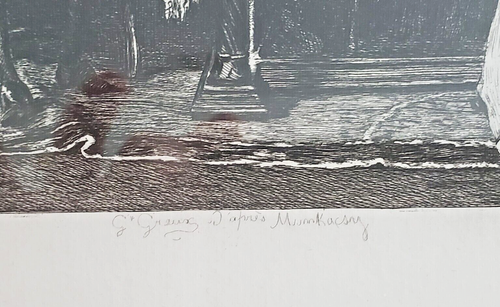 Gs Greux D'après Munkacsy